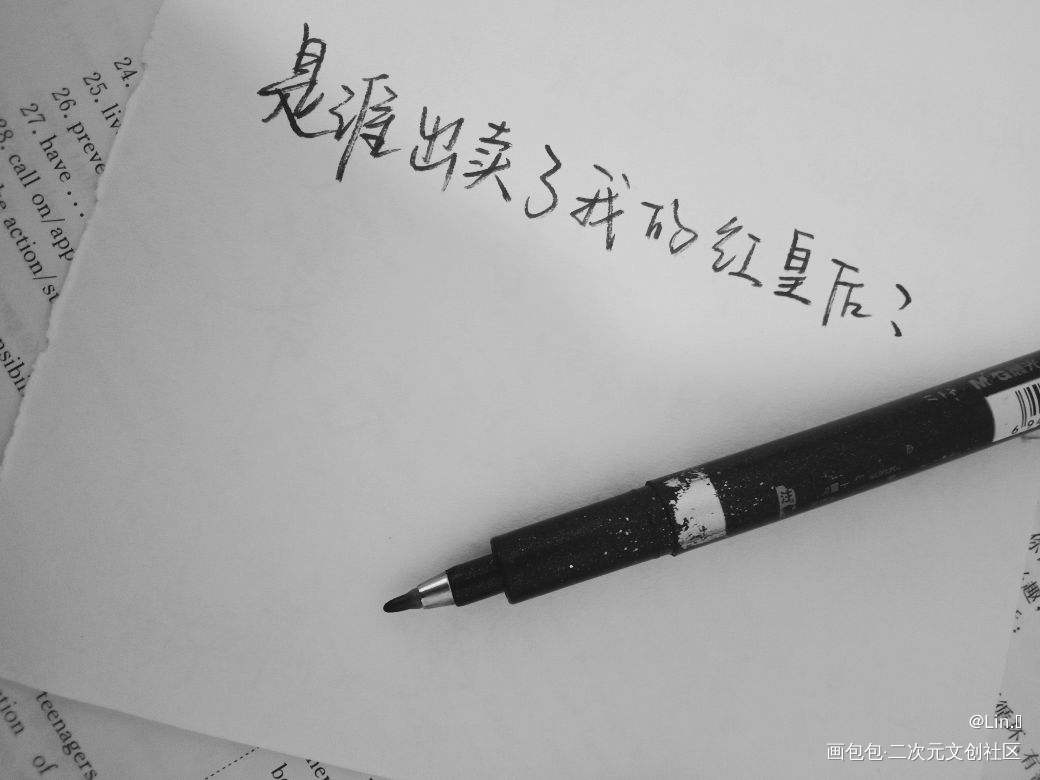 是谁出卖了我的红皇后？
24.
25. liv
26. preve
27. have ...
28. call on/app
action/st
nsibili
M&G
teenagers
tion of
趣
有
@Lin.
画包包·二次元文创社区